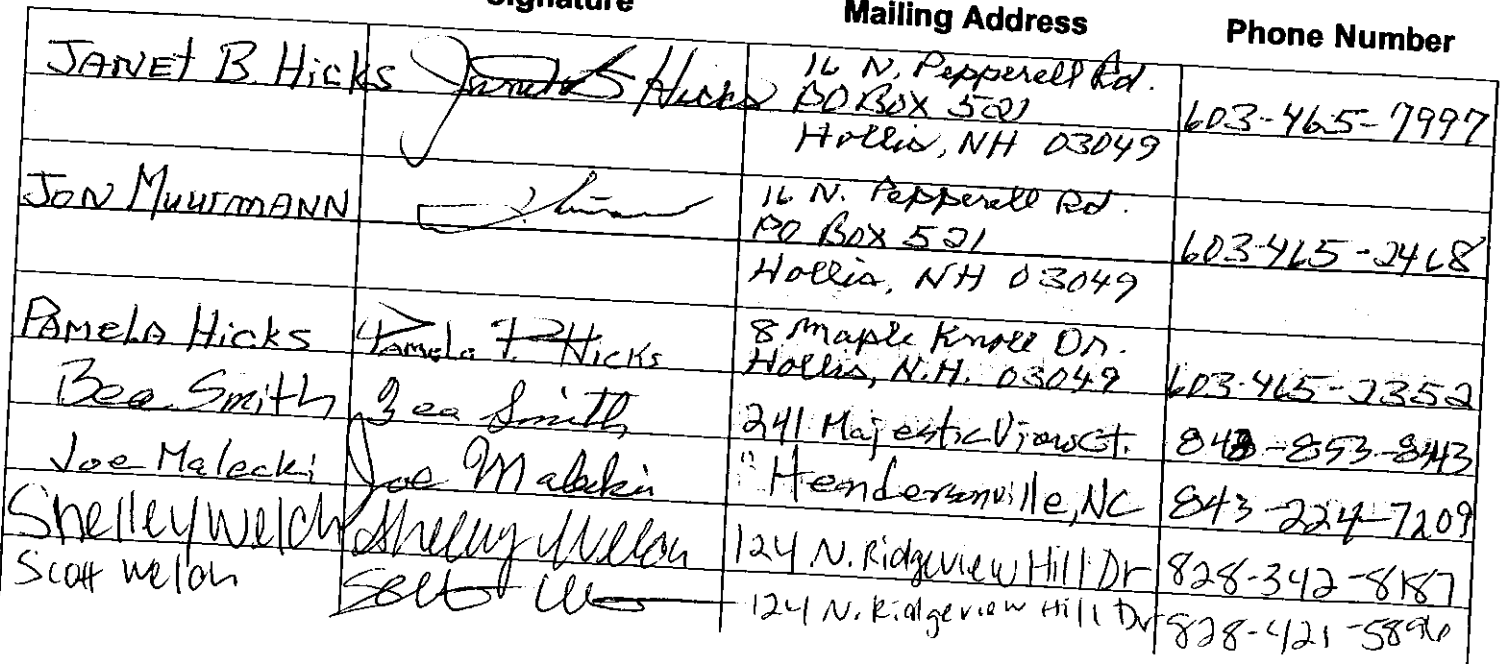 Signature Mailing Address Phone Number
JANET B. Hicks Janet B Hicks 16 N. Pepperell Rd.
PO BOX 521 603-465-7997
Hollis, NH 03049
JON MuurmANN 16 N. Pepperell Rd.
PO BOX 521 603-465-2468
Hollis, NH 03049
PAmelA Hicks Pamela F. Hicks 8 Maple Knoll Dr.
Hollis, N.H. 03049 603-465-2352
Bea Smith Bea Smith 241 Majestic View Ct. 843-853-8443
Joe Malecki Joe Malecki " Hendersonville, NC 843-224-7209
Shelley Welch Shelley Welch 124 N. Ridgeview Hill Dr 828-342-8187
Scott Welch Scott 124 N. Ridgeview Hill Dr 828-421-5896